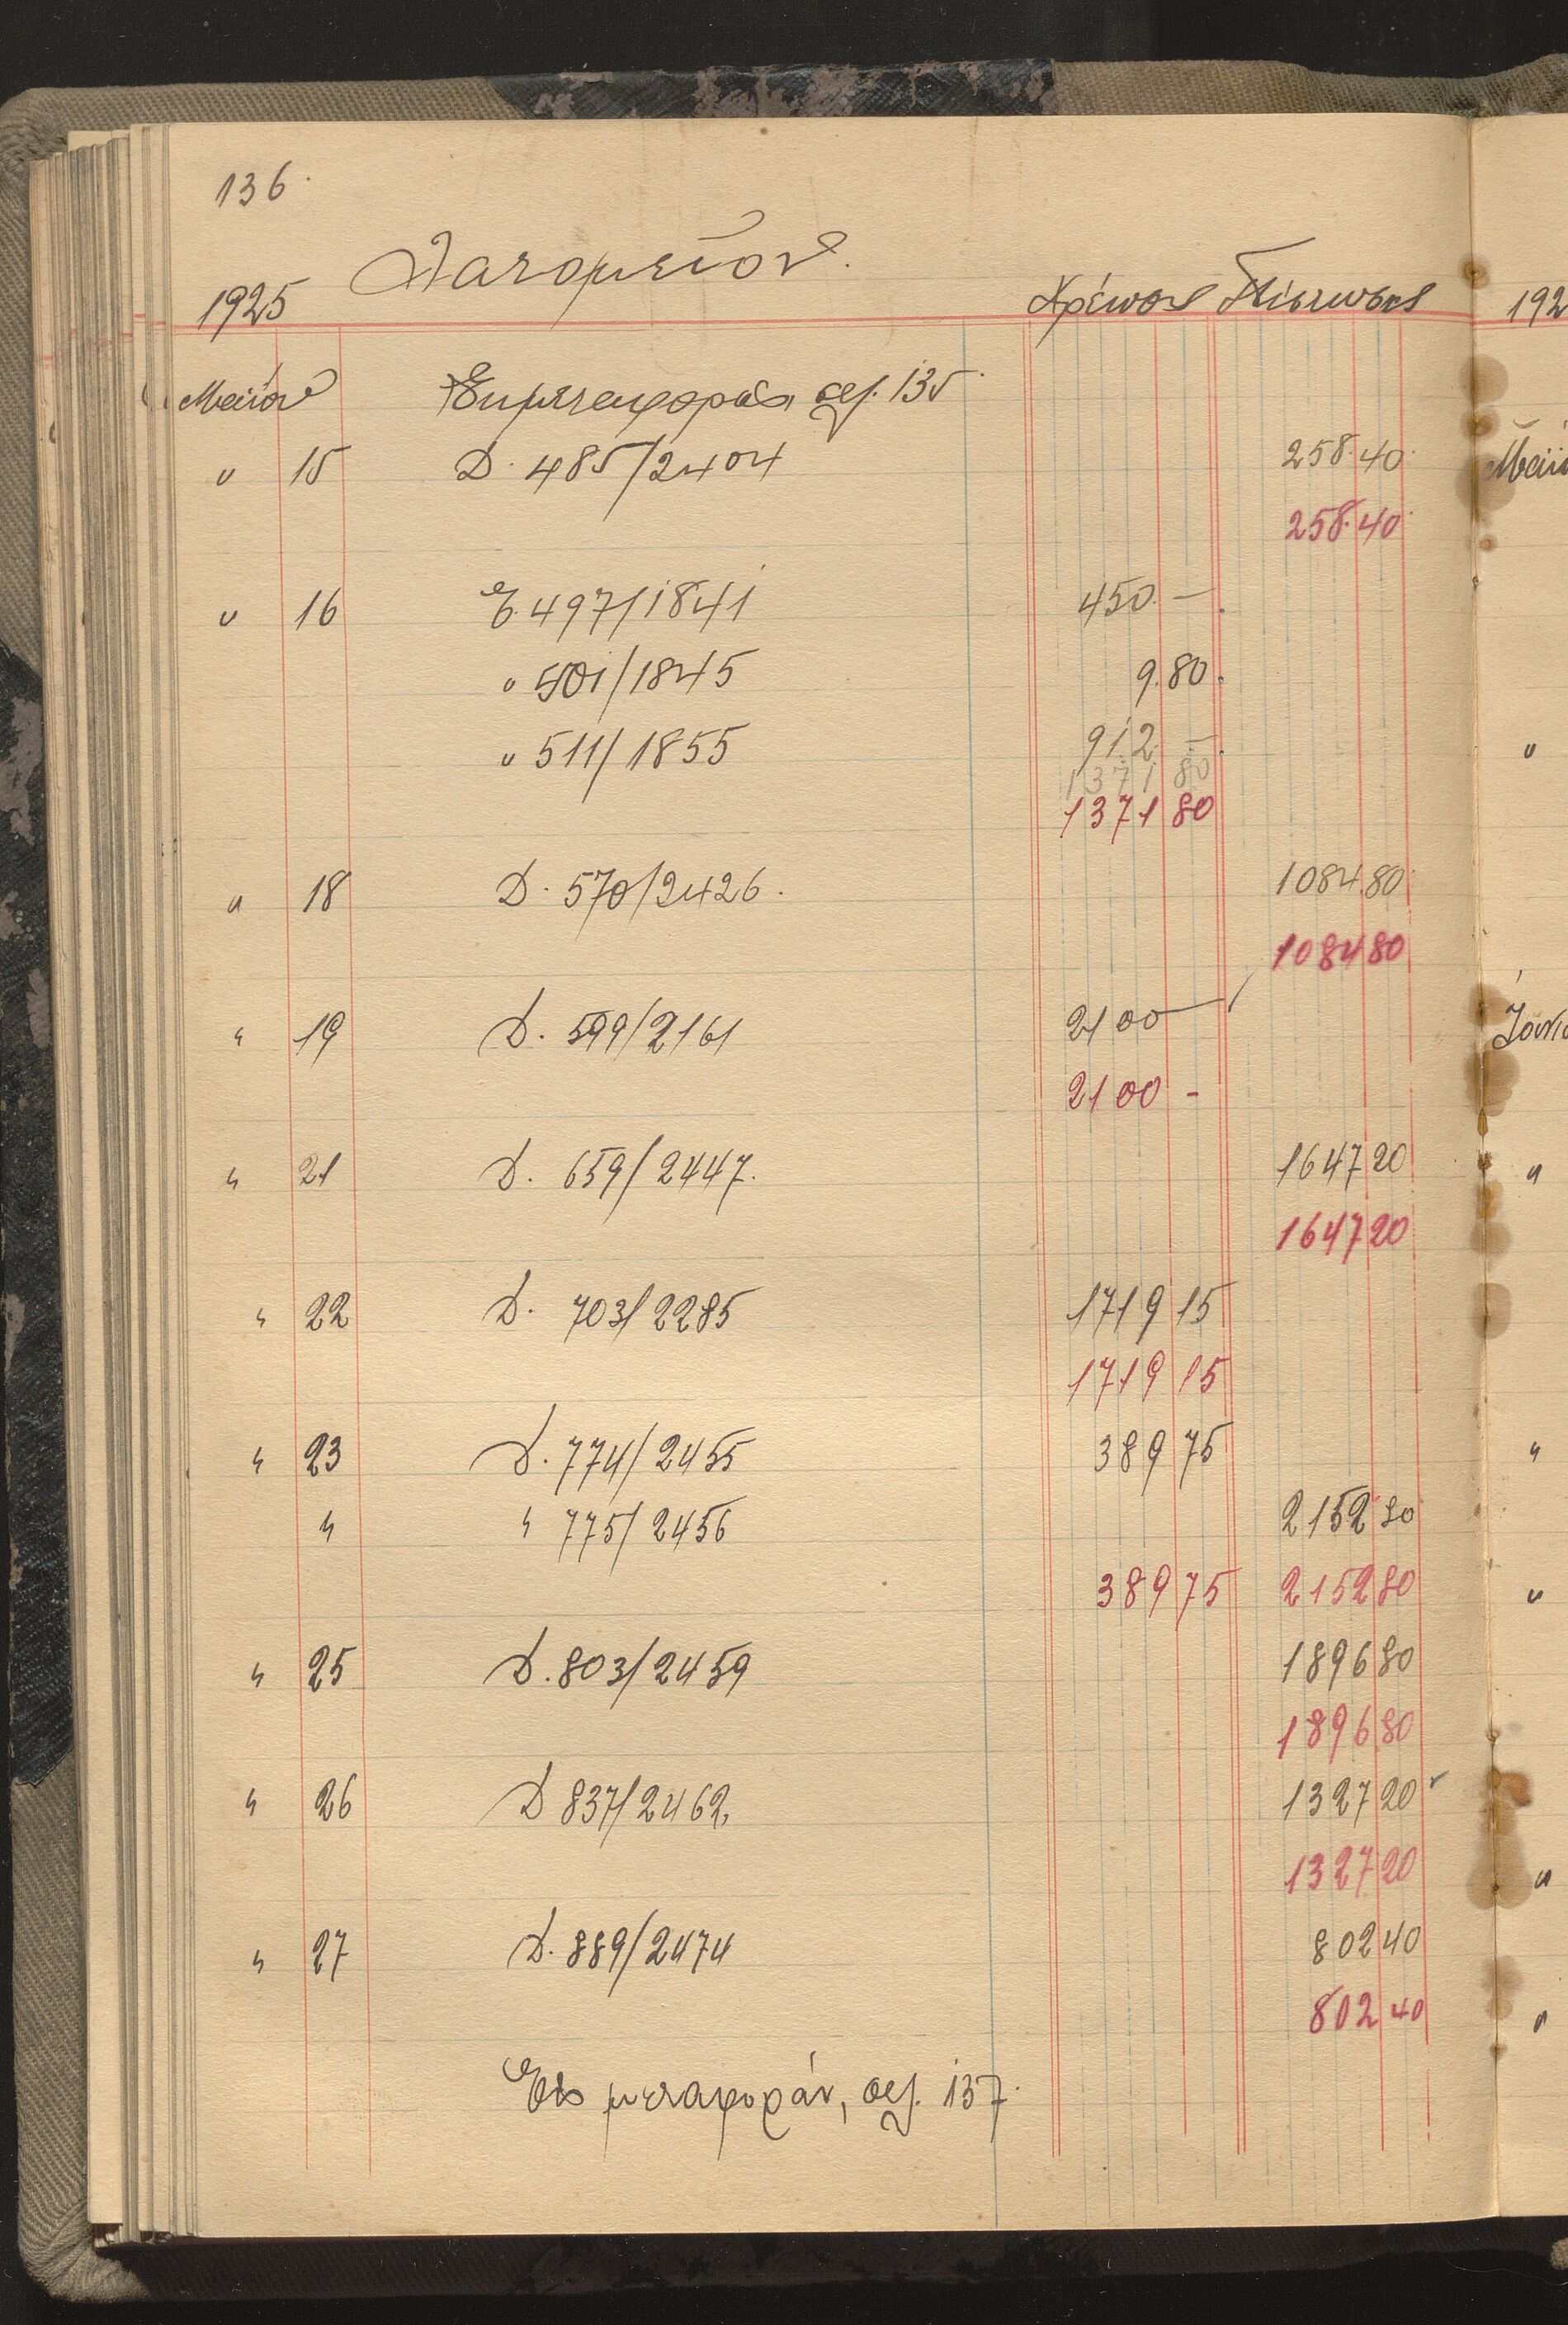 136.
Λατομεῖον.
1925 Χρέωσις Πίστωσις 192
Μαΐου Ἐκ μεταφορᾶς, σελ. 135
" 15 Δ. 485/2404 258.40
258.40
" 16 Ε. 497/1841 450.—
" 501/1845 9.80
" 511/1855 912.—
1371 80
1371 80
" 18 Δ. 570/2426. 1084.80
1084 80
" 19 Δ. 599/2161 2100 —
2100 -
" 21 Δ. 659/2447. 1647 20
1647 20
" 22 Δ. 703/2285 1719 15
1719 15
" 23 Δ. 774/2455 389 75
" " 775/2456 2152 80
389 75 2152 80
" 25 Δ. 803/2459 1896 80
1896 80
" 26 Δ 837/2462. 1327 20
1327 20
" 27 Δ. 889/2474 802 40
802 40
Εἰς μεταφοράν, σελ. 137.